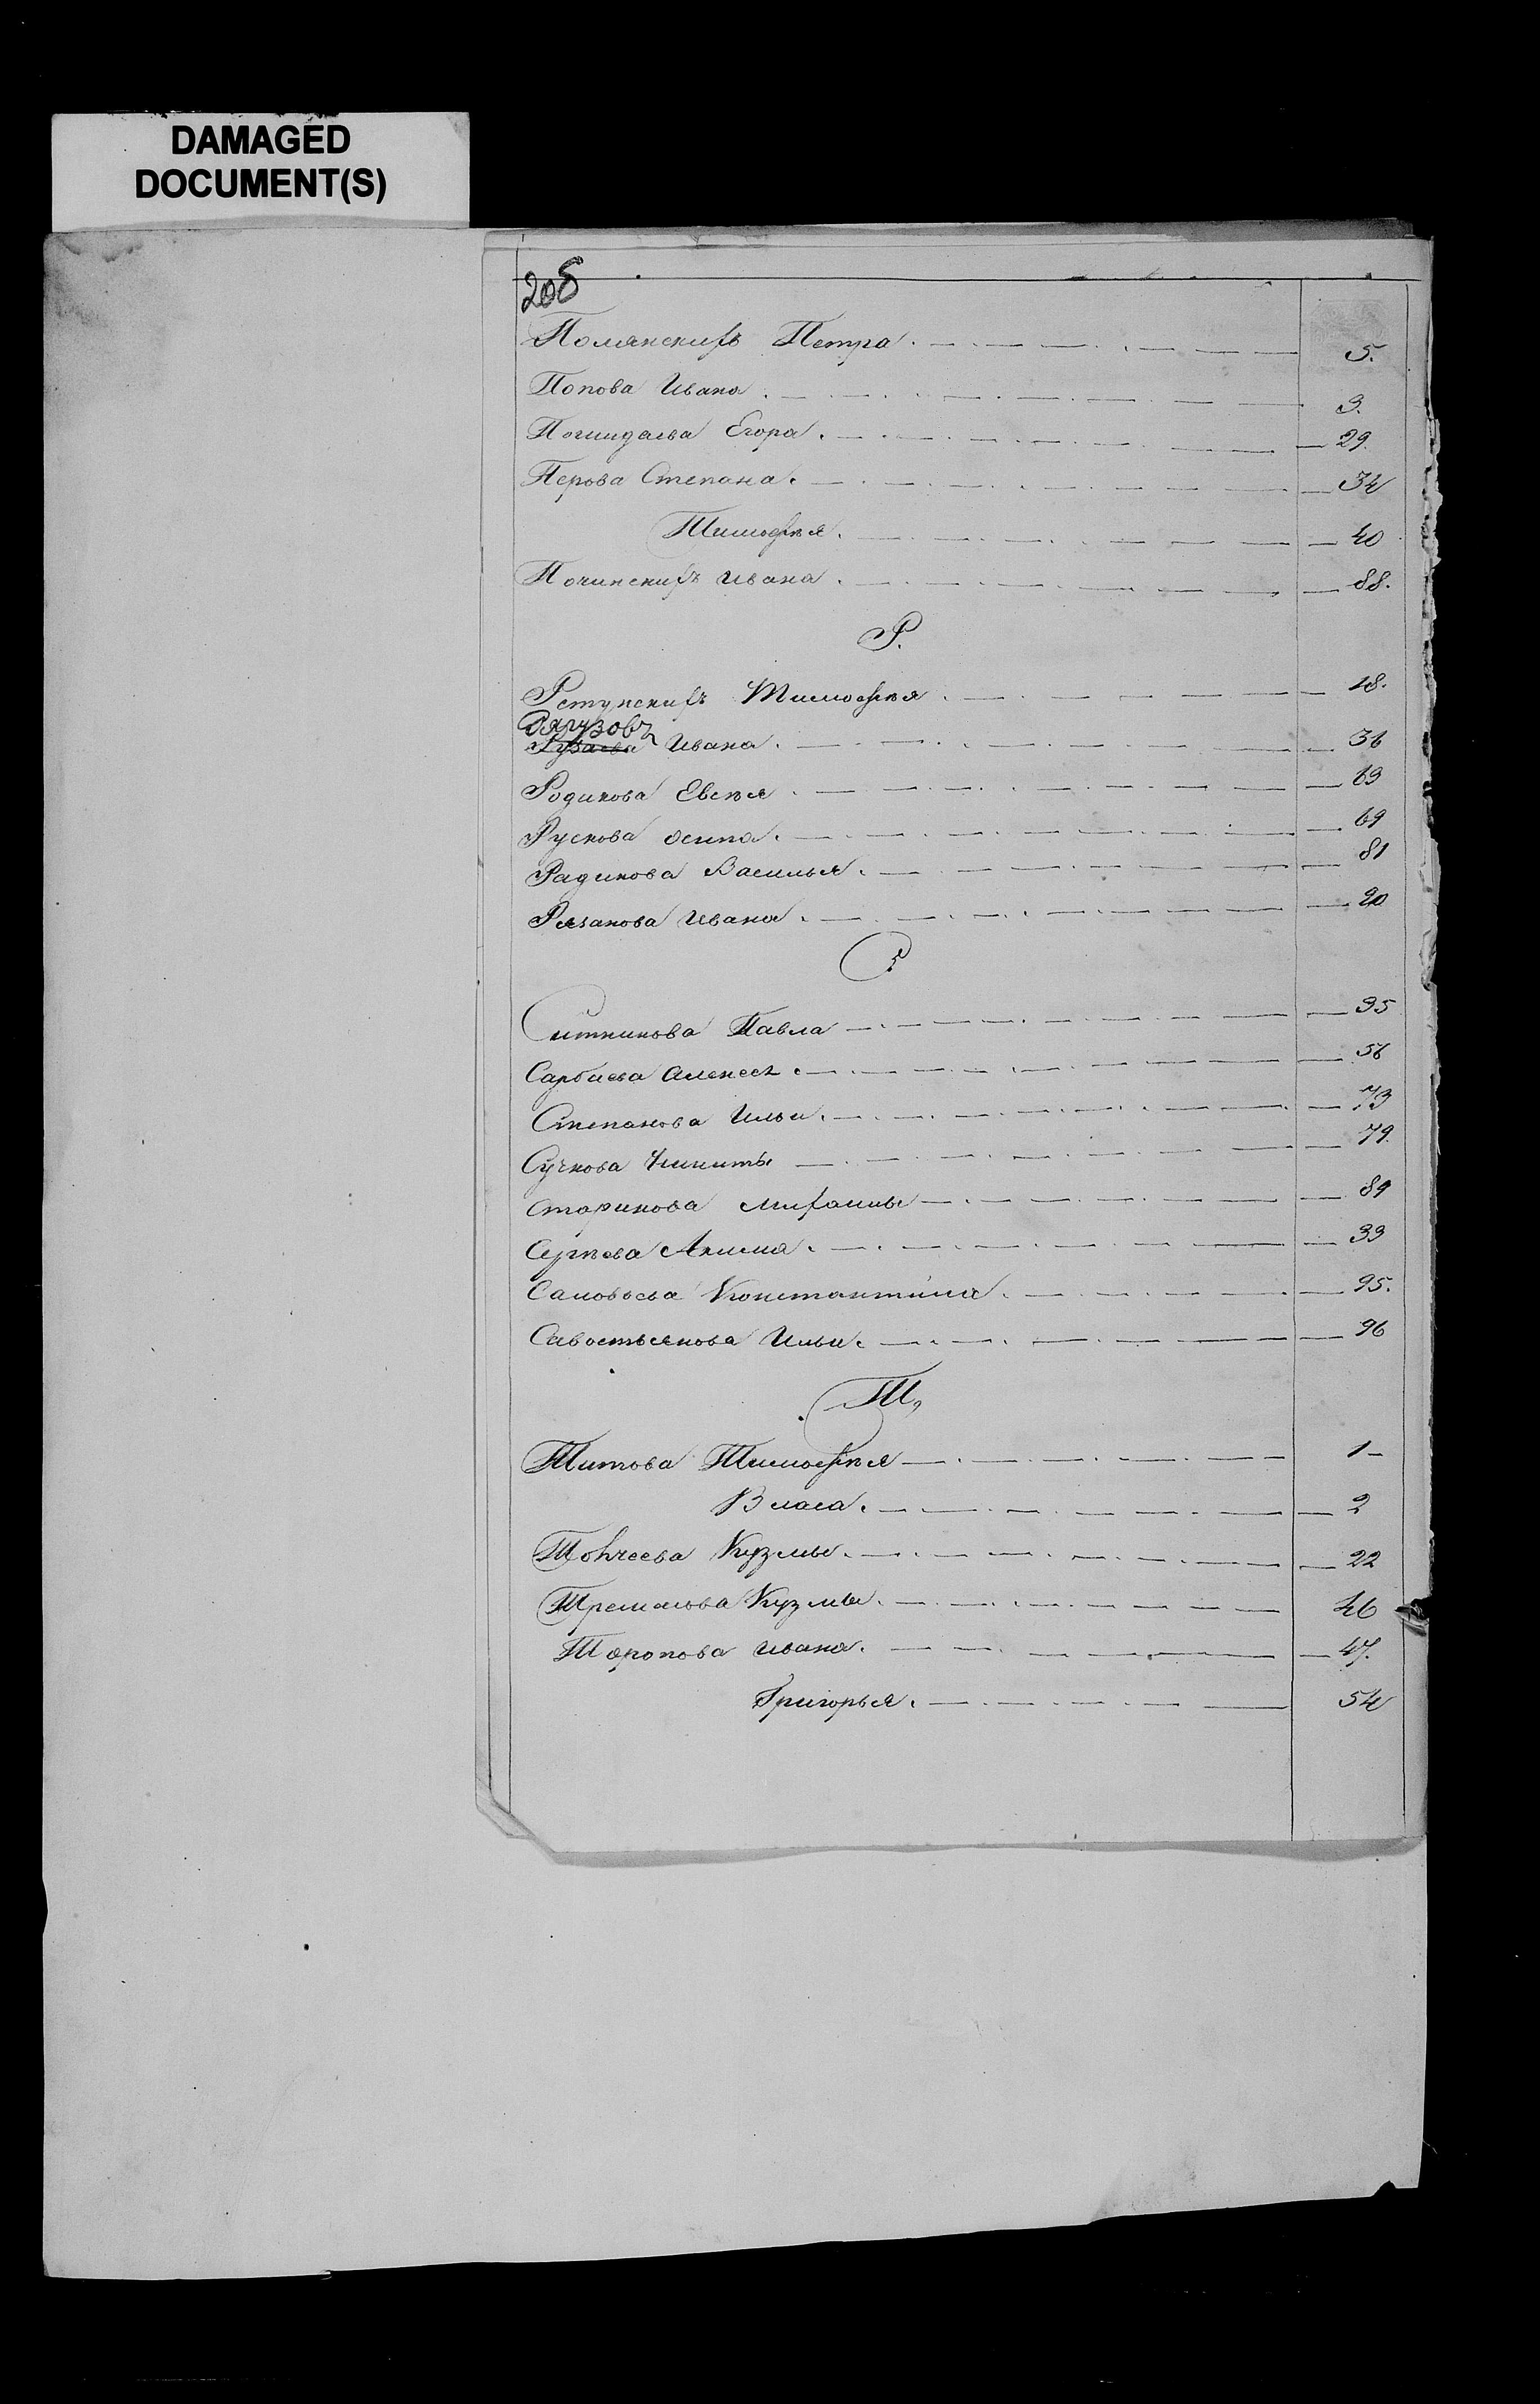 DAMAGED
DOCUMENT(S)
208
Полянскихъ Петра 5.
Попова Ивана 3.
Егора 29.
Перова Степана 34
Тимофѣя 40
Починскихъ Ивана 88.
Р.
Рстунскихъ Тимофѣя 18.
Рягузовъ
Рузаева Ивана 36
Родикова Евсѣя 63
Рускова Осипа 69
Радикова Василья 81
Рязанова Ивана 20
С.
Ситникова Павла 35
Сарбаева Алексѣя 56
Степанова Ильи 73
Сучкова Никиты 79.
Старикова Михаилы 89
Сергѣева Акима 33
Самовьева Константина 95.
Савостьянова Ильи 96
Т.
Титова Тимофѣя 1
Власа 2
Кузмы 22
Кузмы 46
Торопова Ивана 47.
Григорья 54